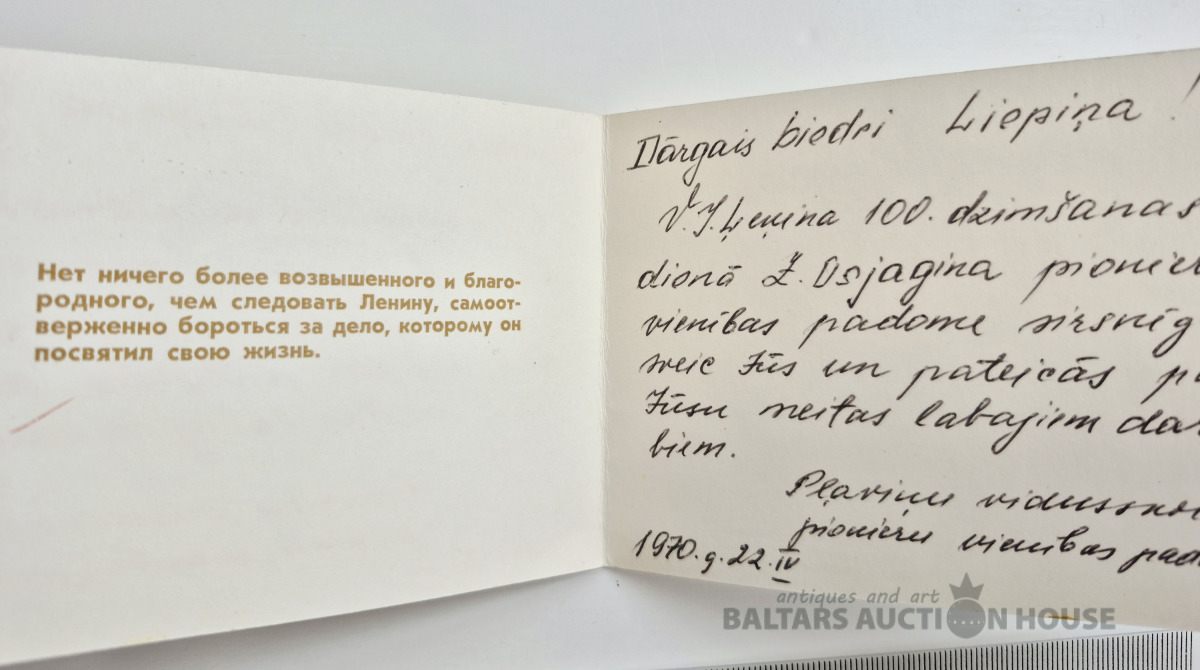 Нет ничего более возвышенного и благо-
родного, чем следовать Ленину, самоот-
верженно бороться за дело, которому он
посвятил свою жизнь.
Dārgais biedri Liepiņa!
V.I.Ļeņina 100. dzimšanas
dienā Ž. Osjagina pionier
vienības padome sirsnīg
sveic Jūs un pateicās pa
Jūsu meitas labajiem dar
biem.
Pļaviņu vidussko
pionieru vienības pado
1970.g.22.IV
antiques and art
BALTARS AUCTION HOUSE